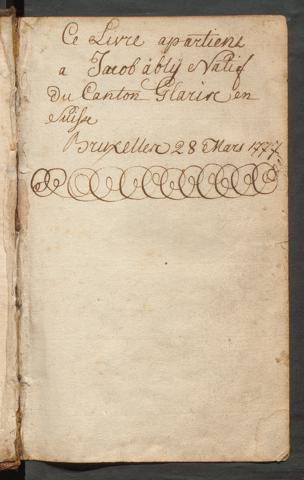 Ce Livre apartient
a Jacob àblÿ Natif
du Canton Glaris en
Suisse
Bruxelles 28 Mars 1777